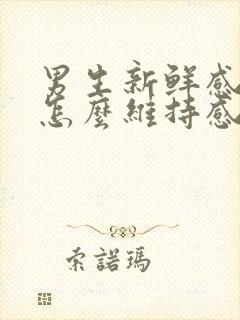 男生新鮮感
怎麼維持感
索諾瑪